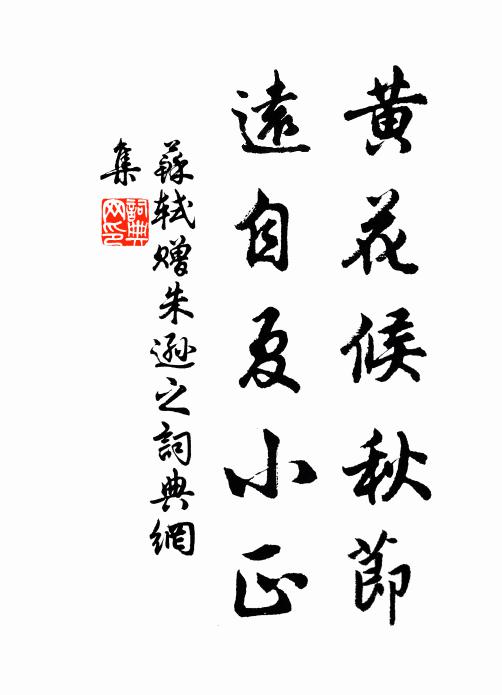 黄花候秋節
遠自夏小正
蘇軾贈朱遜之詞典網
集
詞典網印